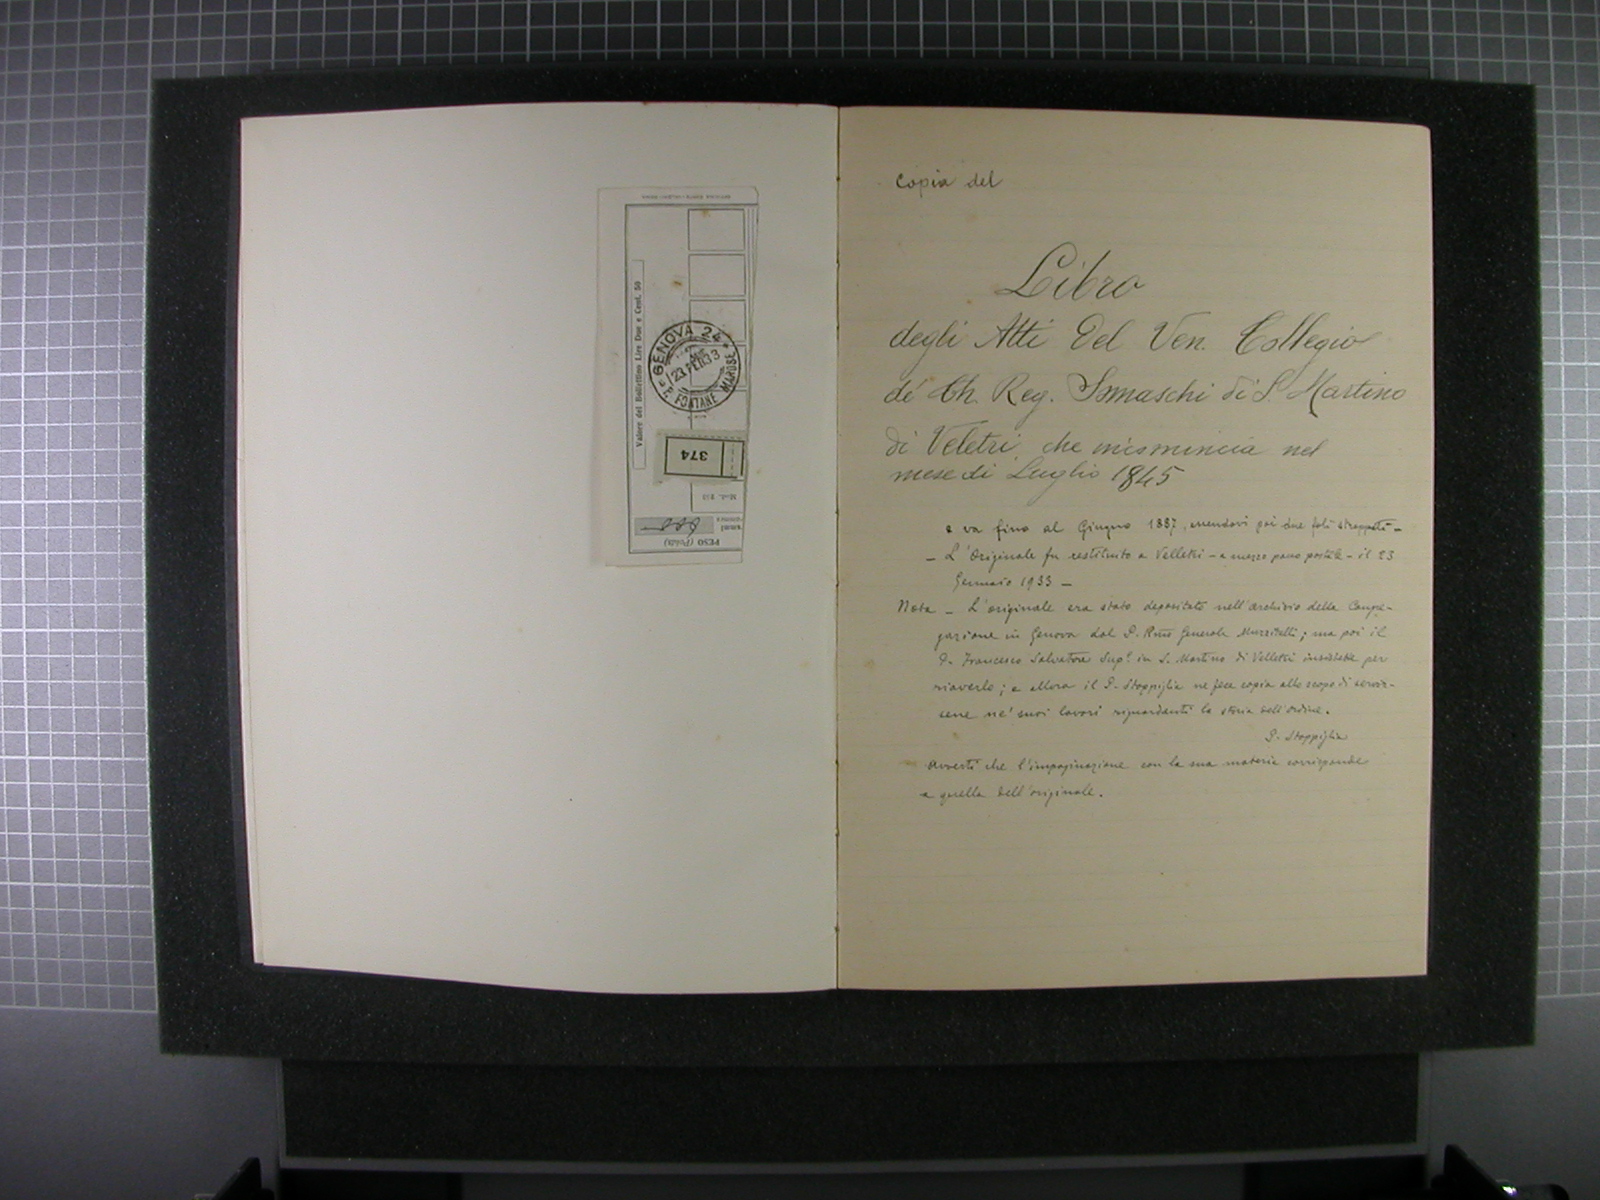 Valore del Bollettino Lire Due e Cent. 50
GENOVA 24
23
FONTANE MAROSE
374
Mod.
PESO (Poids)
Copia del
Libro
degli Atti Del Ven. Collegio
de' Ch. Reg. Somaschi di S. Martino
di Veletri che incomincia nel
mese di Luglio 1845
e va fino al Giugno 1887, essendovi poi due foli strappati -
- L'Originale fu restituito a Velletri - a mezzo pacco postale - il 23
Gennaio 1933 -
Nota - L'originale era stato depositato nell'archivio della Congre-
gazione in Genova dal P. Rmo Generale Muzzitelli; ma poi il
P. Francesco Salvatore Supe. in S. Martino di Velletri insistette per
riaverlo; e allora il P. Stoppiglia ne fece copia allo scopo di servir-
sene ne' suoi lavori riguardanti la storia dell'ordine.
P. Stoppiglia
Avverti che l'impaginazione con la sua materia corrisponde
a quella dell'originale.